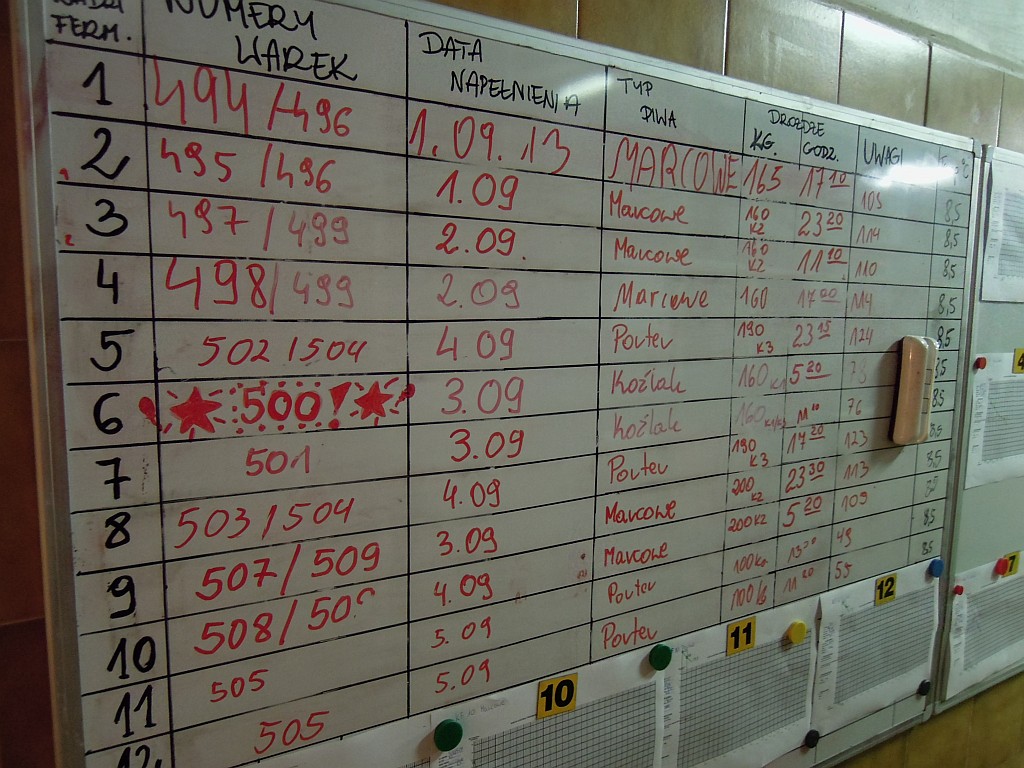 FERM.
NUMERY WAREK
DATA NAPEŁNIENIA
TYP PIWA
DROŻDŻE
KG.
GODZ.
UWAGI
°C
1 494/496 1.09.13 MARCOWE 165 17 10 105 8,5
2 495/496 1.09 Marcowe 160 k2 23 20 114 8,5
3 497/499 2.09. Marcowe 160 k2 11 10 110 8,5
4 498/499 2.09 Marcowe 160 17 00 114 8,5
5 502/504 4.09 Porter 190 k3 23 15 124 8,5
6 500! 3.09 Koźlak 160 5 20 8,5
7 501 3.09 Koźlak 160 11 00 76 8,5
8 503/504 4.09 Porter 190 k3 17 20 123 8,5
9 507/509 3.09 Marcowe 200 k2 23 30 113 8,5
10 508/50 4.09 Marcowe 200 k2 5 20 109
11 505 5.09 Porter 100kg 49 8,5
12 505 5.09 Porter 100kg 11 20 55 8,5
10
11
12
7